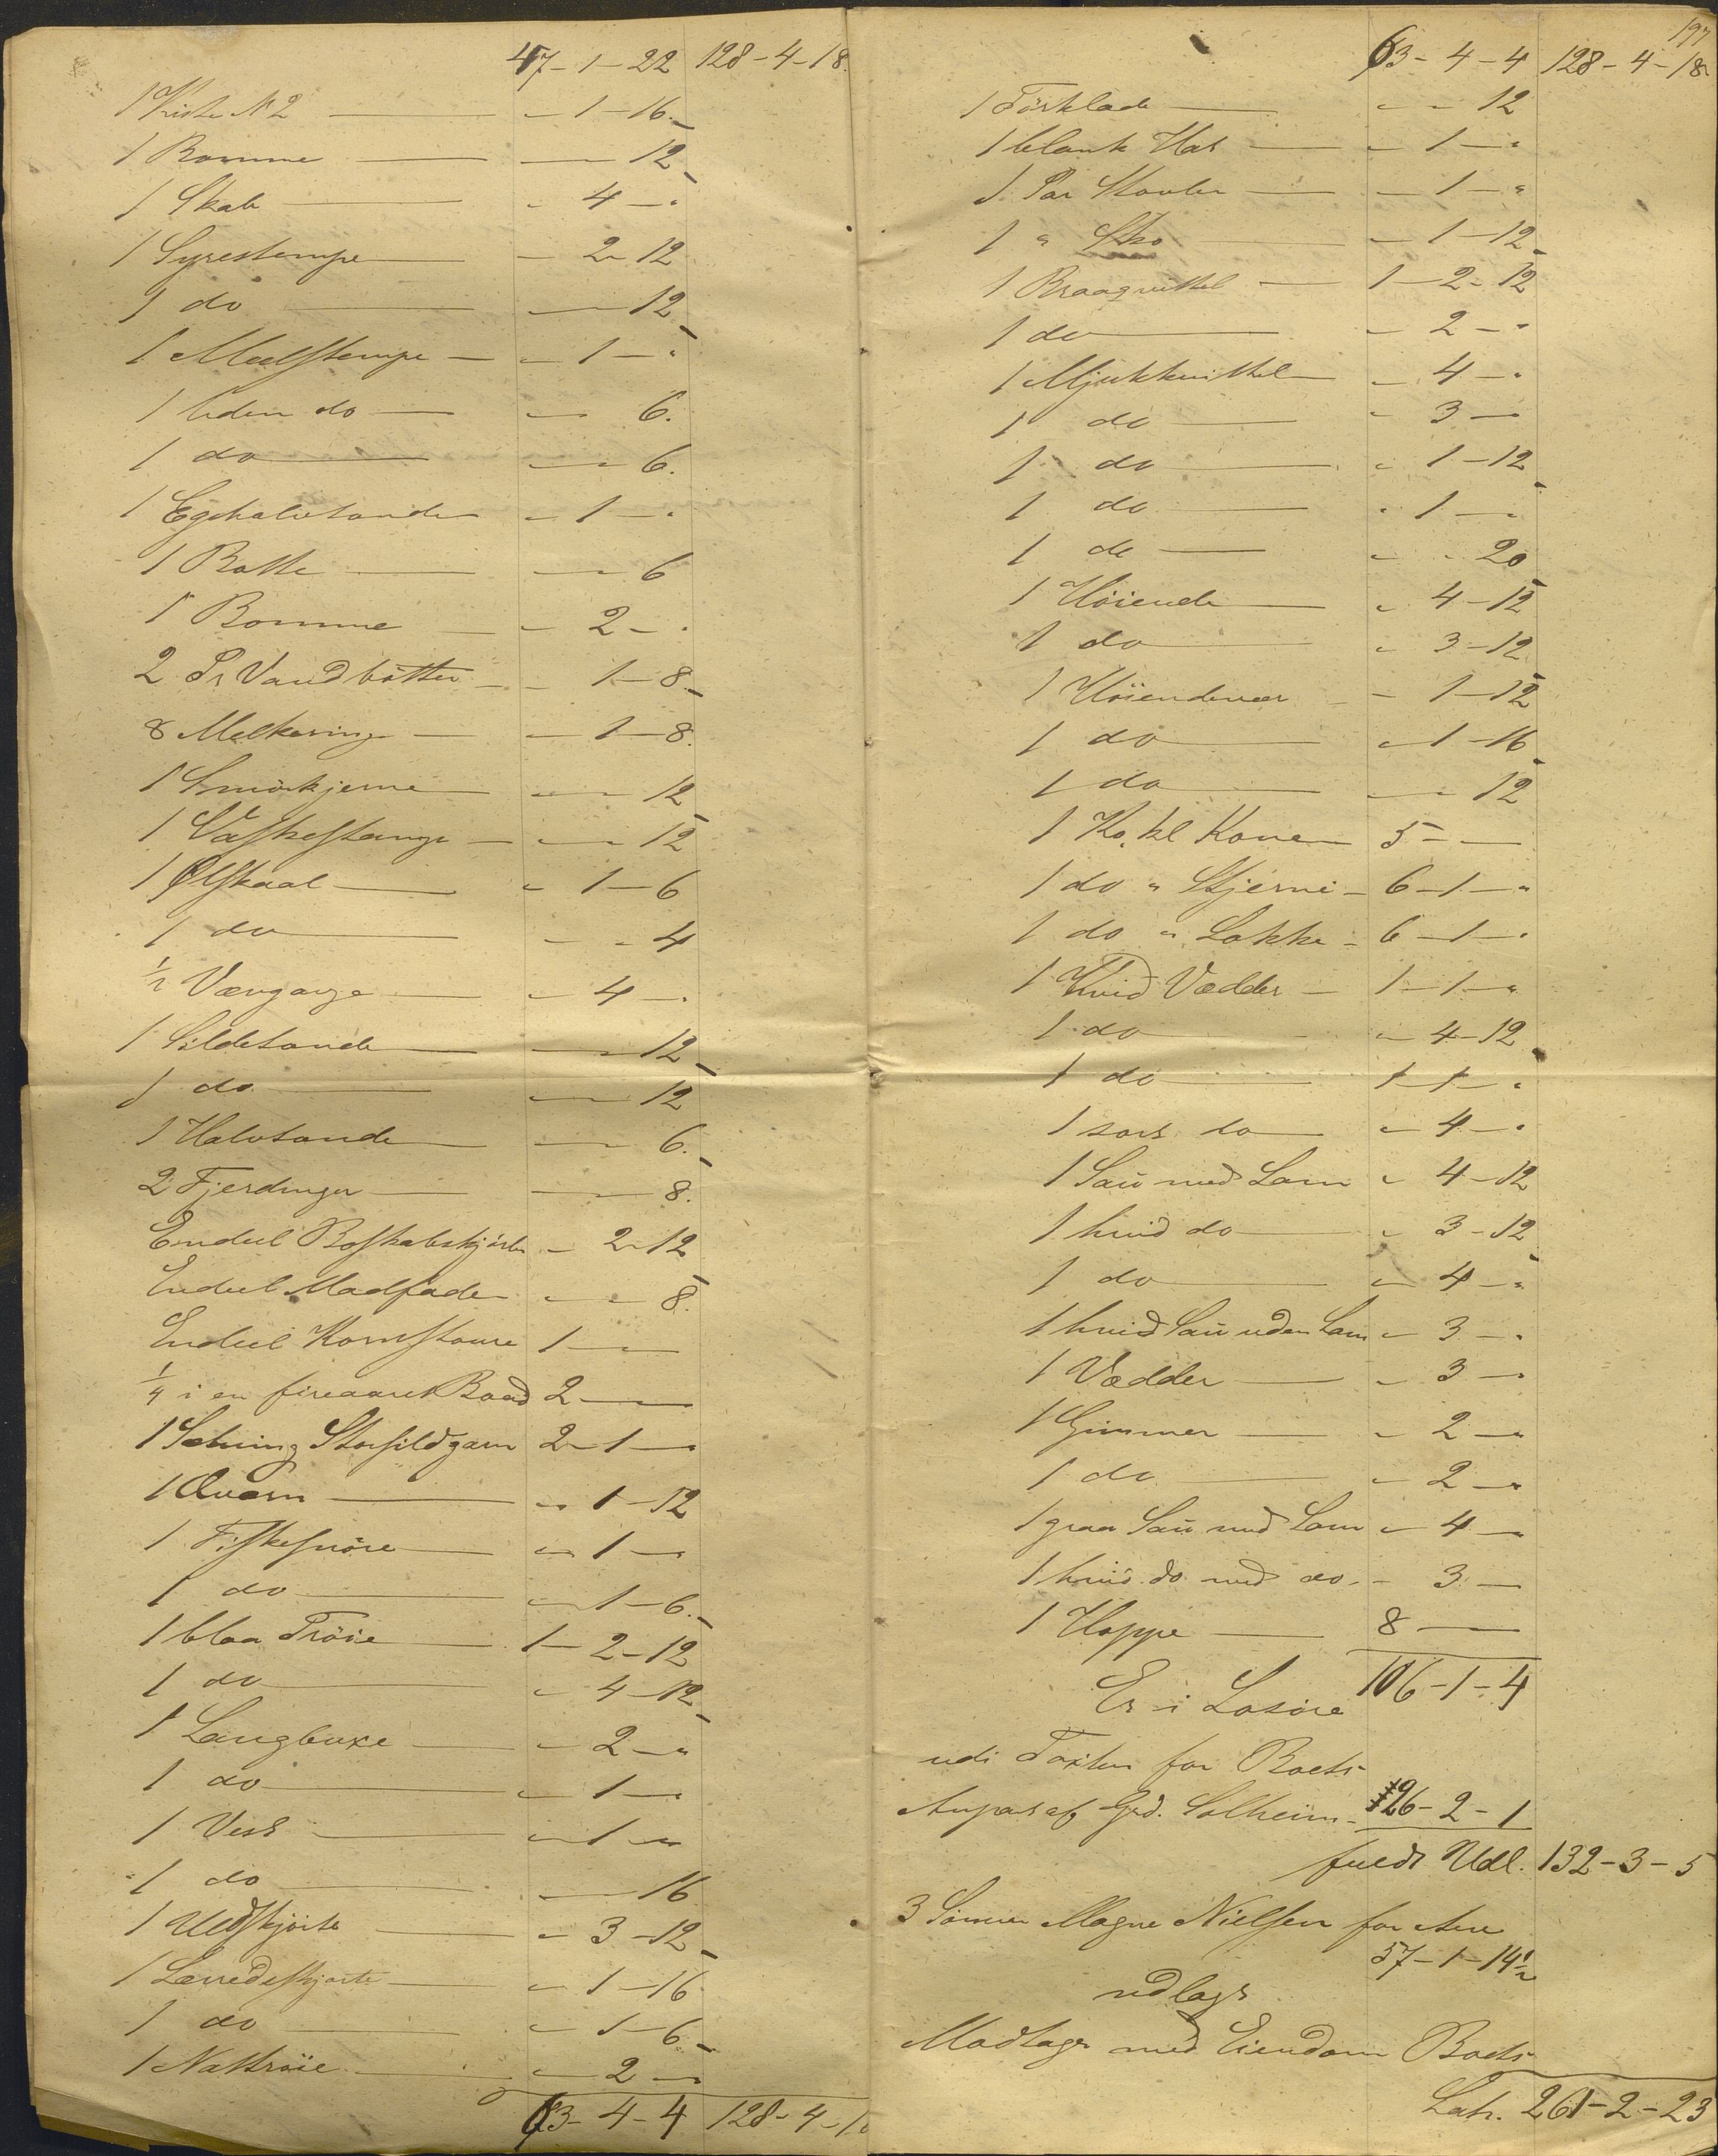 47-1-22 128-4-18.
1 Kiste N 2 - 1-16.
1 Bomme - 12
1 Skab - 4 - "
1 Syrestempe - 2-12
1 do - 12
1 Meelstempe - 1 - "
1 liden do - 6.
1 do - 6.
1 Egehalvtønde - 1 - "
1 Bøtte - 6
1 Bomme - 2 - "
2 Pr Vandbøtter - 1-8
8 Melkeringe - 1-8.
1 Smörkjerne - 12
1 Vaskestampe - 12
1 Ølskaal - 1-6
1 do - 4
1/2 Vævgange - 4 - "
1 Sildetønde - 12
1 do - 12
1 Halvtønde - 6.
2 Fjerdinger - 8.
Endeel Boskabskjörler - 2-12
Endeel Madfade - 8.
Endeel Kornstaure 1 -
1/4 i en fireaaret Baad 2 -
1 Sætning Storsildgarn 2-1 - "
1 Qværn - 1-12
1 Fiskesnöre - 1 - "
1 do - 1-6.
1 blaa Tröie 1-2-12
1 do - 4-12
1 Langbuxe - 2 - "
1 do - 1 - "
1 Vest - 1 - "
1 do - 16
1 Uldskjörte - 3-12
1 Lærredsskjorte - 1-16
1 do - 1-6
1 Nattröie - 2 - "
63-4-4 128-4-1
197
63-4-4 128-4-18
1 Förklæde - - 12
1 blank Hat - 1 - "
1 Par Støvler - 1 - "
1 " Sko - 1-12
1 Braagvittel 1-2-12
1 do - 2 - "
1 Mjukkvittel - 4 - "
1 do - 3 -
1 do - 1-12
1 do - 1 - "
1 do - - 20
1 Höiende - 4-12
1 do - 3-12
1 Höiendevær - 1-12
1 do - 1-16
1 do - 12
1 Ko, kl Konen 5 - -
1 do " Stjerne - 6-1 - "
1 do " Lokke - 6-1 - "
1 Hvid Vædder - 1-1 - "
1 do - 4-12
1 do 1-1 - "
1 sort do - 4 - "
1 Sau med Lam - 4-12
1 hvid do - 3-12
1 do - 4 - "
1 hvid Sau uden Lam - 3 - "
1 Vædder - 3 -
1 Gimmer - 2 - "
1 do - 2 - "
1 graa Sau med Lam - 4 -
1 hvid do med do - 3 -
1 Hoppe - 8 -
Er i Løsöre 106-1-4
udi Taxten for Boets
Anpart af Grd. Solheim - 26-2-1
fuldt Udl. 132-3-5
3 Sönnen Magne Nielsen for Arv
57-1-14 1/2
udlagt
Modtager med Eiendom Boets
Latr. 261-2-23